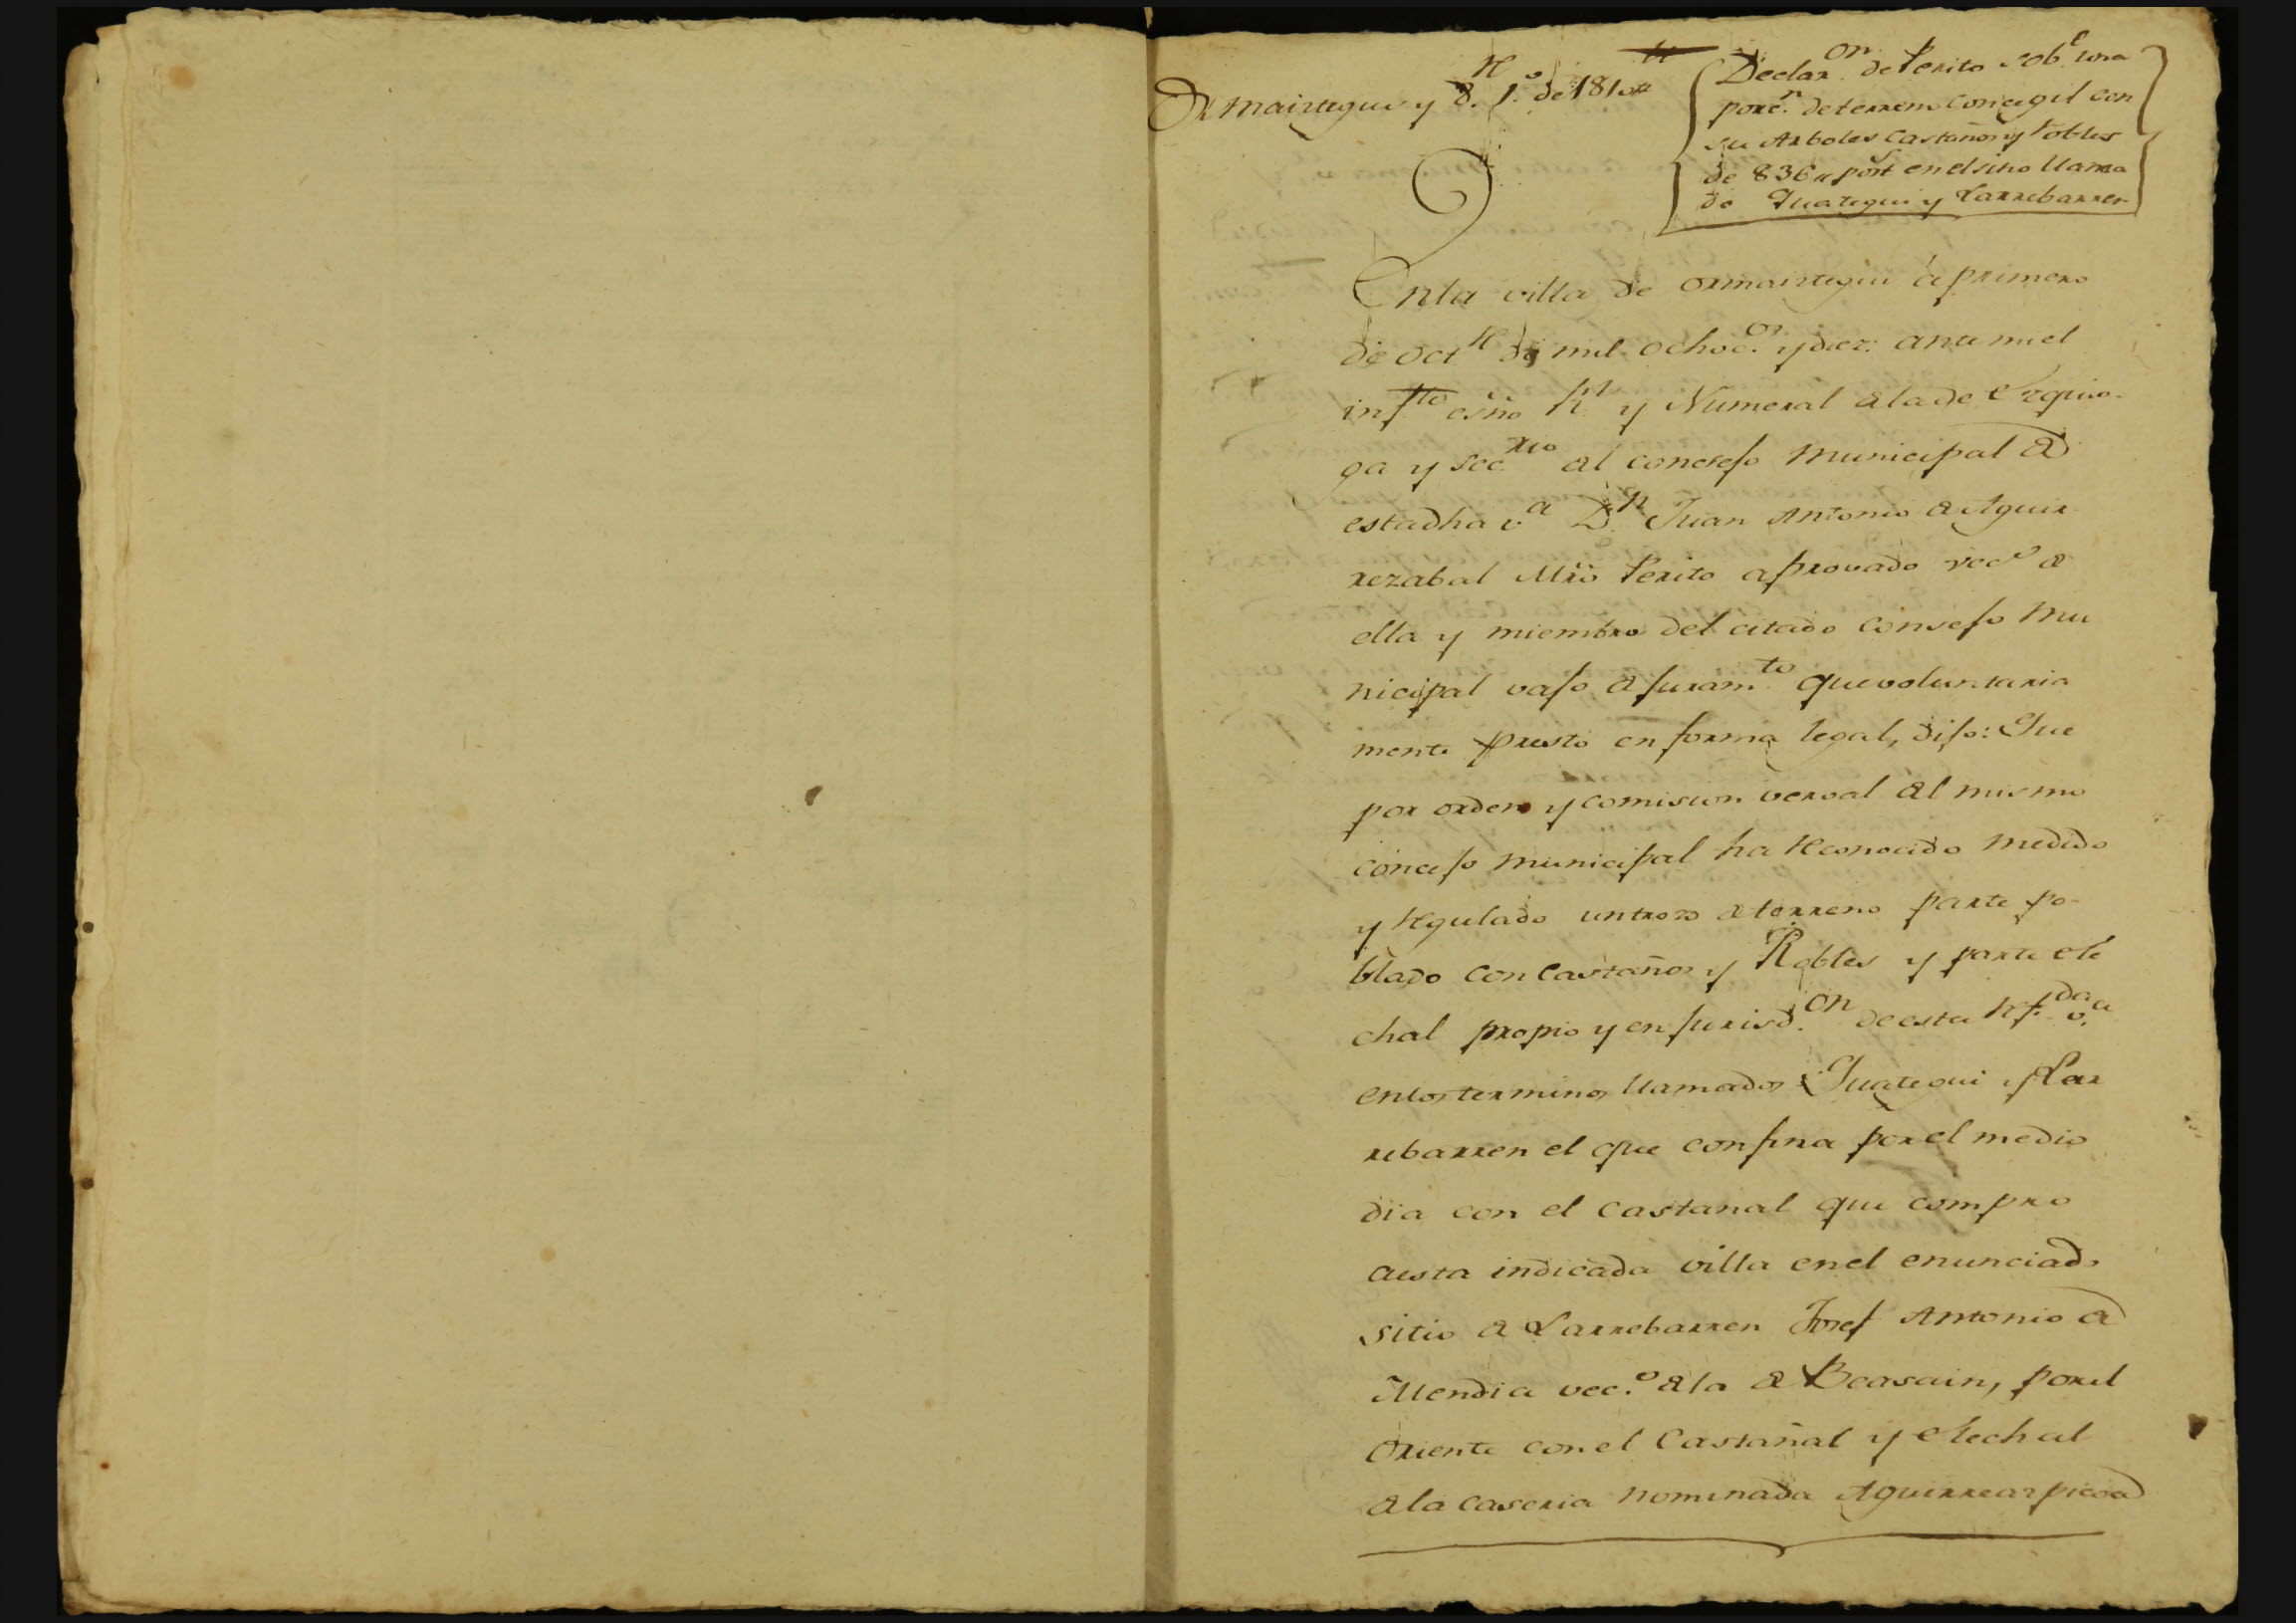 Ormaiztegui y 8.re 1.o de 1810
Declar.on de Perito sob.e una
porc.n de terreno concegil con
su Arboles Castaños y Robles
de 836 post.s en el sitio llama
do Iuategui y Larrebarren
En la villa de Ormaiztegui à primero
de oct.re de mil ochoc.os y diez: ante mi el
inf.to esño R.l y Numeral de la de Ezquio-
ga y Sec.rio del concejo Municipal de
esta dha v.a D.n Juan Antonio de Aguir
rezabal Mro Perito aprovado vec.o de
ella y miembro del citado consejo Mu
nicipal vajo de juram.to que voluntaria
mente presto en forma legal, dijo: Que
por orden y comision verval del mismo
concejo Municipal ha reconocido medido
y regulado un trozo de terreno parte po-
blado con Castaños y Robles y parte ele
chal propio y en jurisd.on de esta rf.da v.a
en los terminos llamados Iuategui y Lar
rebarren el que confina por el medio
dia con el Castanal que compro
a esta indicada villa en el enunciado
sitio de Larrebarren Josef Antonio de
Mendia vec.o de la de Beasain, por el
Oriente con el Castañal y elechal
de la caseria nominada Aguirrearpicoa